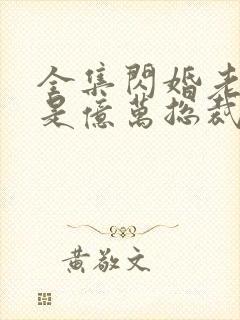 全集閃婚老
是億萬總裁
黃敬文